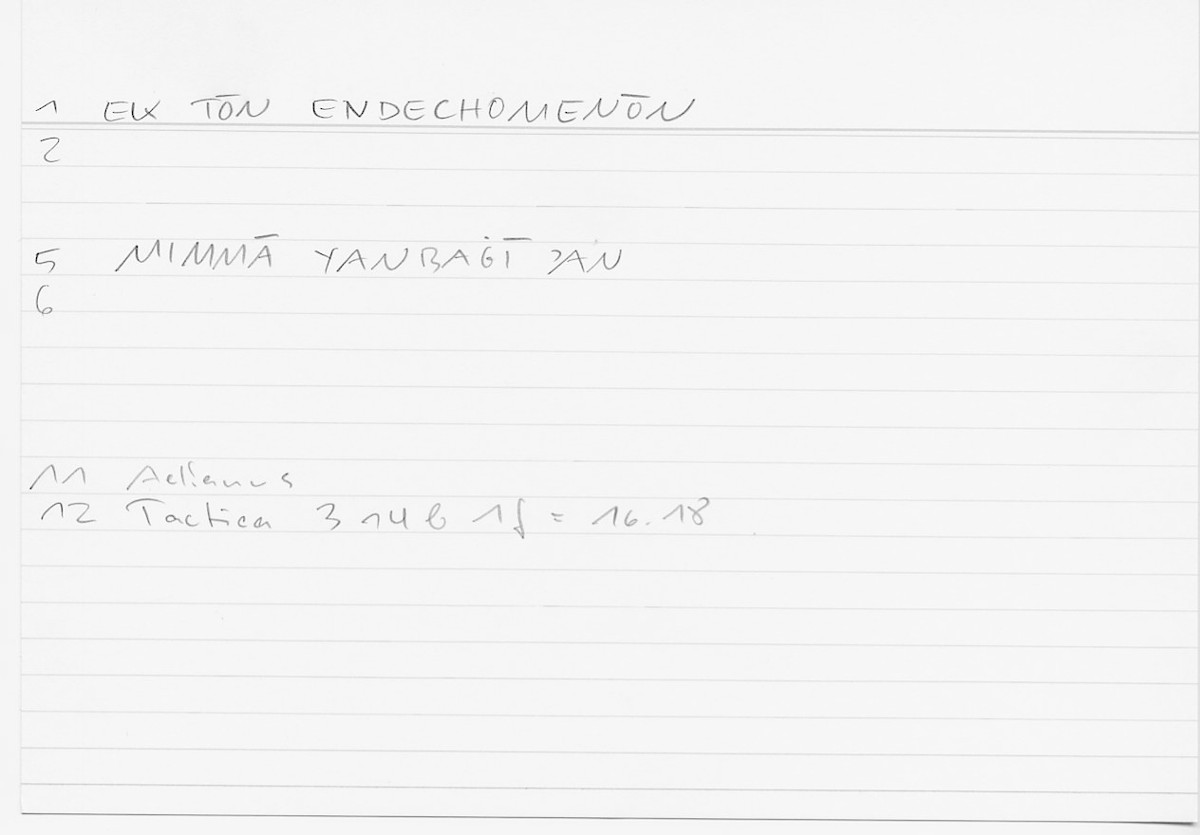 1 EK TŌN ENDECHOMENŌN
2
5 MIMMĀ YANBAĠĪ ʾAN
6
11 Aelianus
12 Tactica 3 14 b 1f = 16.18